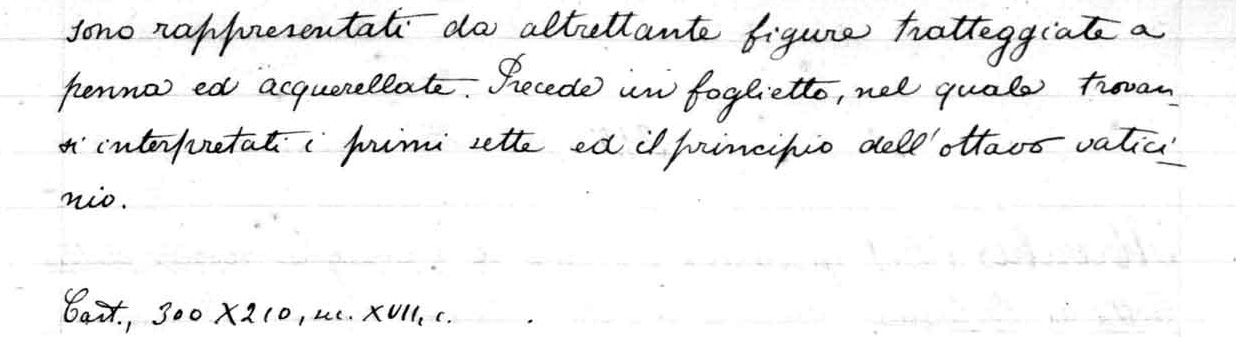 sono rappresentati da altrettante figure tratteggiate a
penna ed acquerellate. Precede un foglietto, nel quale trovan_
si interpretati i primi sette ed il principio dell'ottavo vatici_
nio.
Cart., 300 X 210, sec. XVII, c.